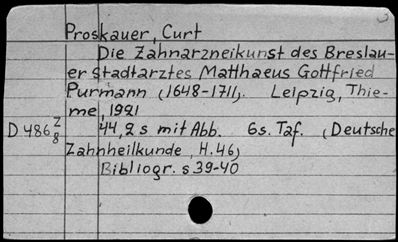 Proskauer, Curt
Die Zahnarzneikunst des Breslau-
er Stadtarztes Matthaeus Gottfried
Purmann (1648-1711). Leipzig, Thie-
me, 1921
D 486 z/8 44, 2 s mit Abb. 6s. Taf. (Deutsche
Zahnheilkunde, H. 46)
Bibliogr. s 39-40